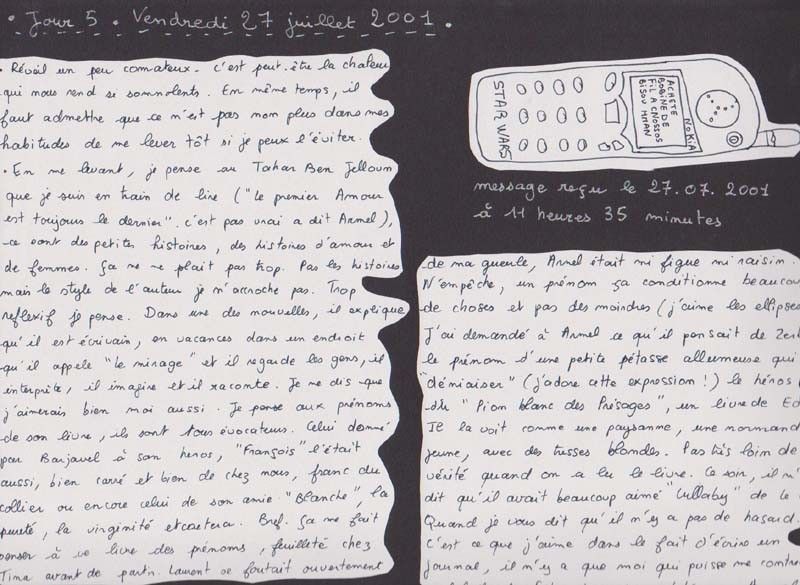 • Jour 5 • Vendredi 27 juillet 2001 •
• Réveil un peu comateux. C'est peut-être la chaleur
qui nous rend si somnolents. En même temps, il
faut admettre que ce n'est pas non plus dans mes
habitudes de me lever tôt si je peux l'éviter.
• En me levant, je pense au Tahar Ben Jelloun
que je suis en train de lire ("Le premier Amour
est toujours le dernier". c'est pas vrai a dit Armel),
ce sont des petites histoires, des histoires d'amour et
de femmes. Ça ne me plait pas trop. Pas les histoires
mais le style de l'auteur je n'accroche pas. Trop
reflexif je pense. Dans une des nouvelles, il explique
qu'il est écrivain, en vacances dans un endroit
qu'il appele "le mirage" et il regarde les gens, il
interprète, il imagine et il raconte. Je me dis que
j'aimerais bien moi aussi. Je pense aux prénoms
de son livre, ils sont tous évocateurs. Celui donné
par Barjavel à son héros, "François" l'était
aussi, bien carré et bien de chez nous, franc du
collier ou encore celui de son amie "Blanche", la
pureté, la virginité etcaetera. Bref. Ça me fait
penser à ce livre des prénoms, feuilleté chez
Tima avant de partir. Laurent se foutait ouvertement
STAR WARS
ACHETE
BOBINE DE
FIL A CNOSSOS
BISOU MMAN
NOKIA
message reçu le 27.07.2001
à 11 heures 35 minutes
de ma gueule, Armel était mi figue mi raisin.
N'empêche, un prénom ça conditionne beaucou
de choses et pas des moindres (j'aime les ellipses
J'ai demandé à Armel ce qu'il pensait de
le prénom d'une petite pétasse allumeuse qui
"déniaiser" (j'adore cette expression!) le héros
du "Pion blanc des Présages", un livre de Ed
Il la voit comme une paysanne, une normand
jeune, avec des tresses blondes. Pas très loin de
vérité quand on a lu le livre. Ce soir, il m'
dit qu'il avait beaucoup aimé "Lullaby" de Le
Quand je vous dit qu'il n'y a pas de hasard.
C'est ce que j'aime dans le fait d'écrire un
journal, il n'y a que moi qui puisse me contre